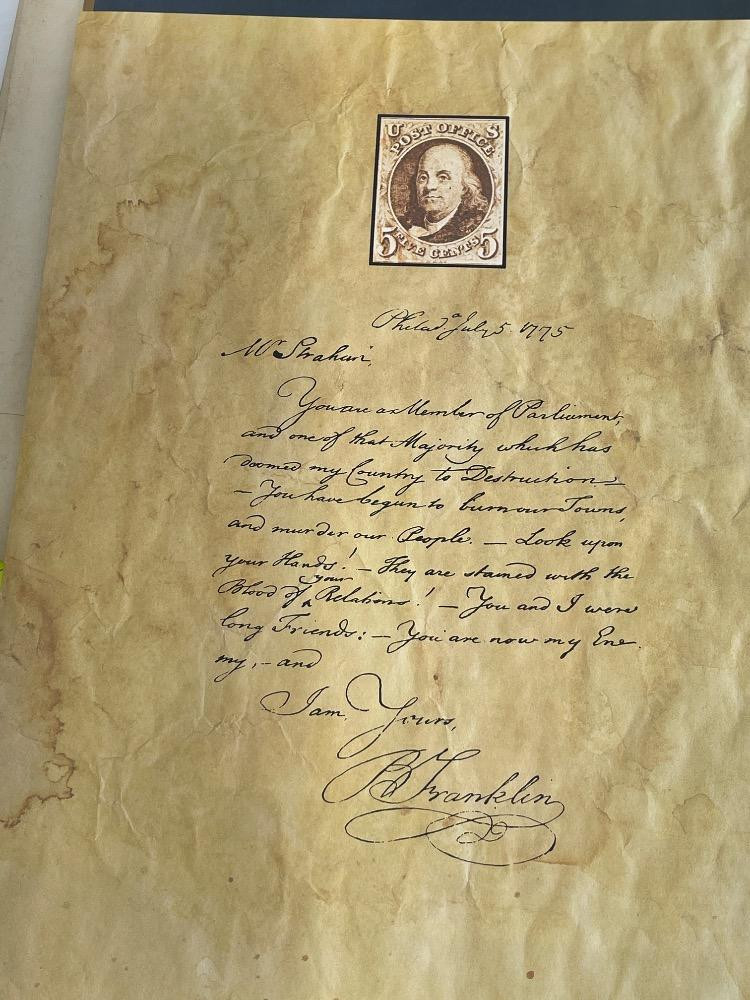 U S
POST OFFICE
5 FIVE CENTS 5
Philad.ᵃ July 5. 1775
Mʳ Strahan,
You are a Member of Parliament,
and one of that Majority which has
doomed my Country to Destruction.
— You have begun to burn our Towns,
and murder our People. — Look upon
your Hands! — They are stained with the
Blood of your Relations! — You and I were
long Friends: — You are now my Ene
my, — and
I am, Yours,
B Franklin